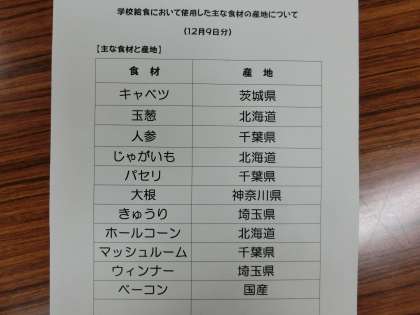 学校給食において使用した主な食材の産地について
(12月9日分)
【主な食材と産地】
食 材 産 地
キャベツ 茨城県
玉葱 北海道
人参 千葉県
じゃがいも 北海道
パセリ 千葉県
大根 神奈川県
きゅうり 埼玉県
ホールコーン 北海道
マッシュルーム 千葉県
ウィンナー 埼玉県
ベーコン 国産